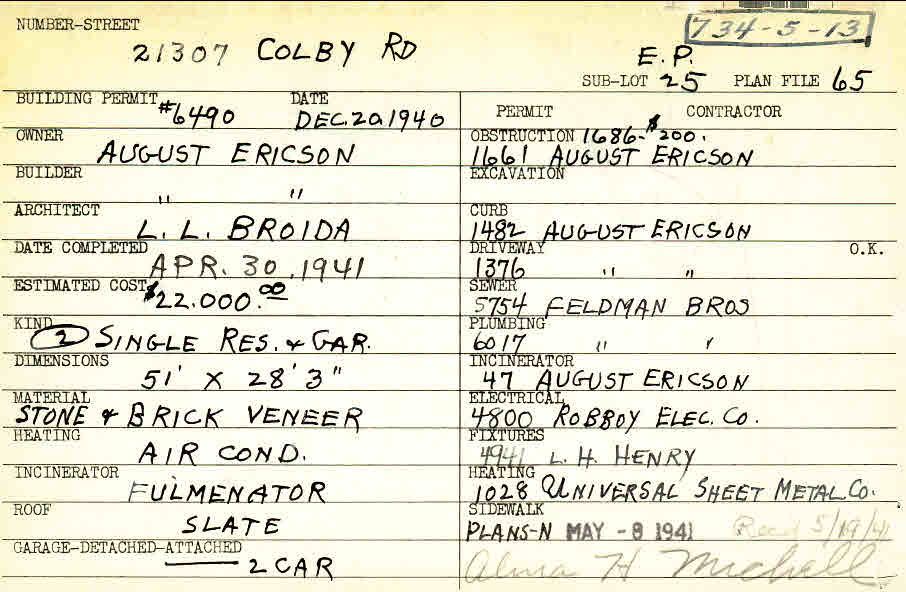 NUMBER-STREET
734-5-13
21307 COLBY RD
E.P.
SUB-LOT 25 PLAN FILE 65
BUILDING PERMIT #6490 DATE DEC. 20, 1940
OWNER
AUGUST ERICSON
BUILDER
" "
ARCHITECT
L. L. BROIDA
DATE COMPLETED
APR. 30, 1941
ESTIMATED COST $22.000.00
KIND
2 SINGLE RES. & GAR.
DIMENSIONS
51' X 28' 3"
MATERIAL
STONE & BRICK VENEER
HEATING
AIR COND.
INCINERATOR
FULMENATOR
ROOF
SLATE
GARAGE-DETACHED-ATTACHED
2 CAR
PERMIT CONTRACTOR
OBSTRUCTION 1686-$200.
1661 AUGUST ERICSON
EXCAVATION
CURB
1482 AUGUST ERICSON
DRIVEWAY O.K.
1376 " "
SEWER
5754 FELDMAN BROS
PLUMBING
6017 " "
INCINERATOR
47 AUGUST ERICSON
ELECTRICAL
4800 ROBBOY ELEC. CO.
FIXTURES
4941 L. H. HENRY
HEATING
1028 UNIVERSAL SHEET METAL CO.
SIDEWALK
PLANS-N MAY -8 1941 Recd 5/19/41
Alma H Michell